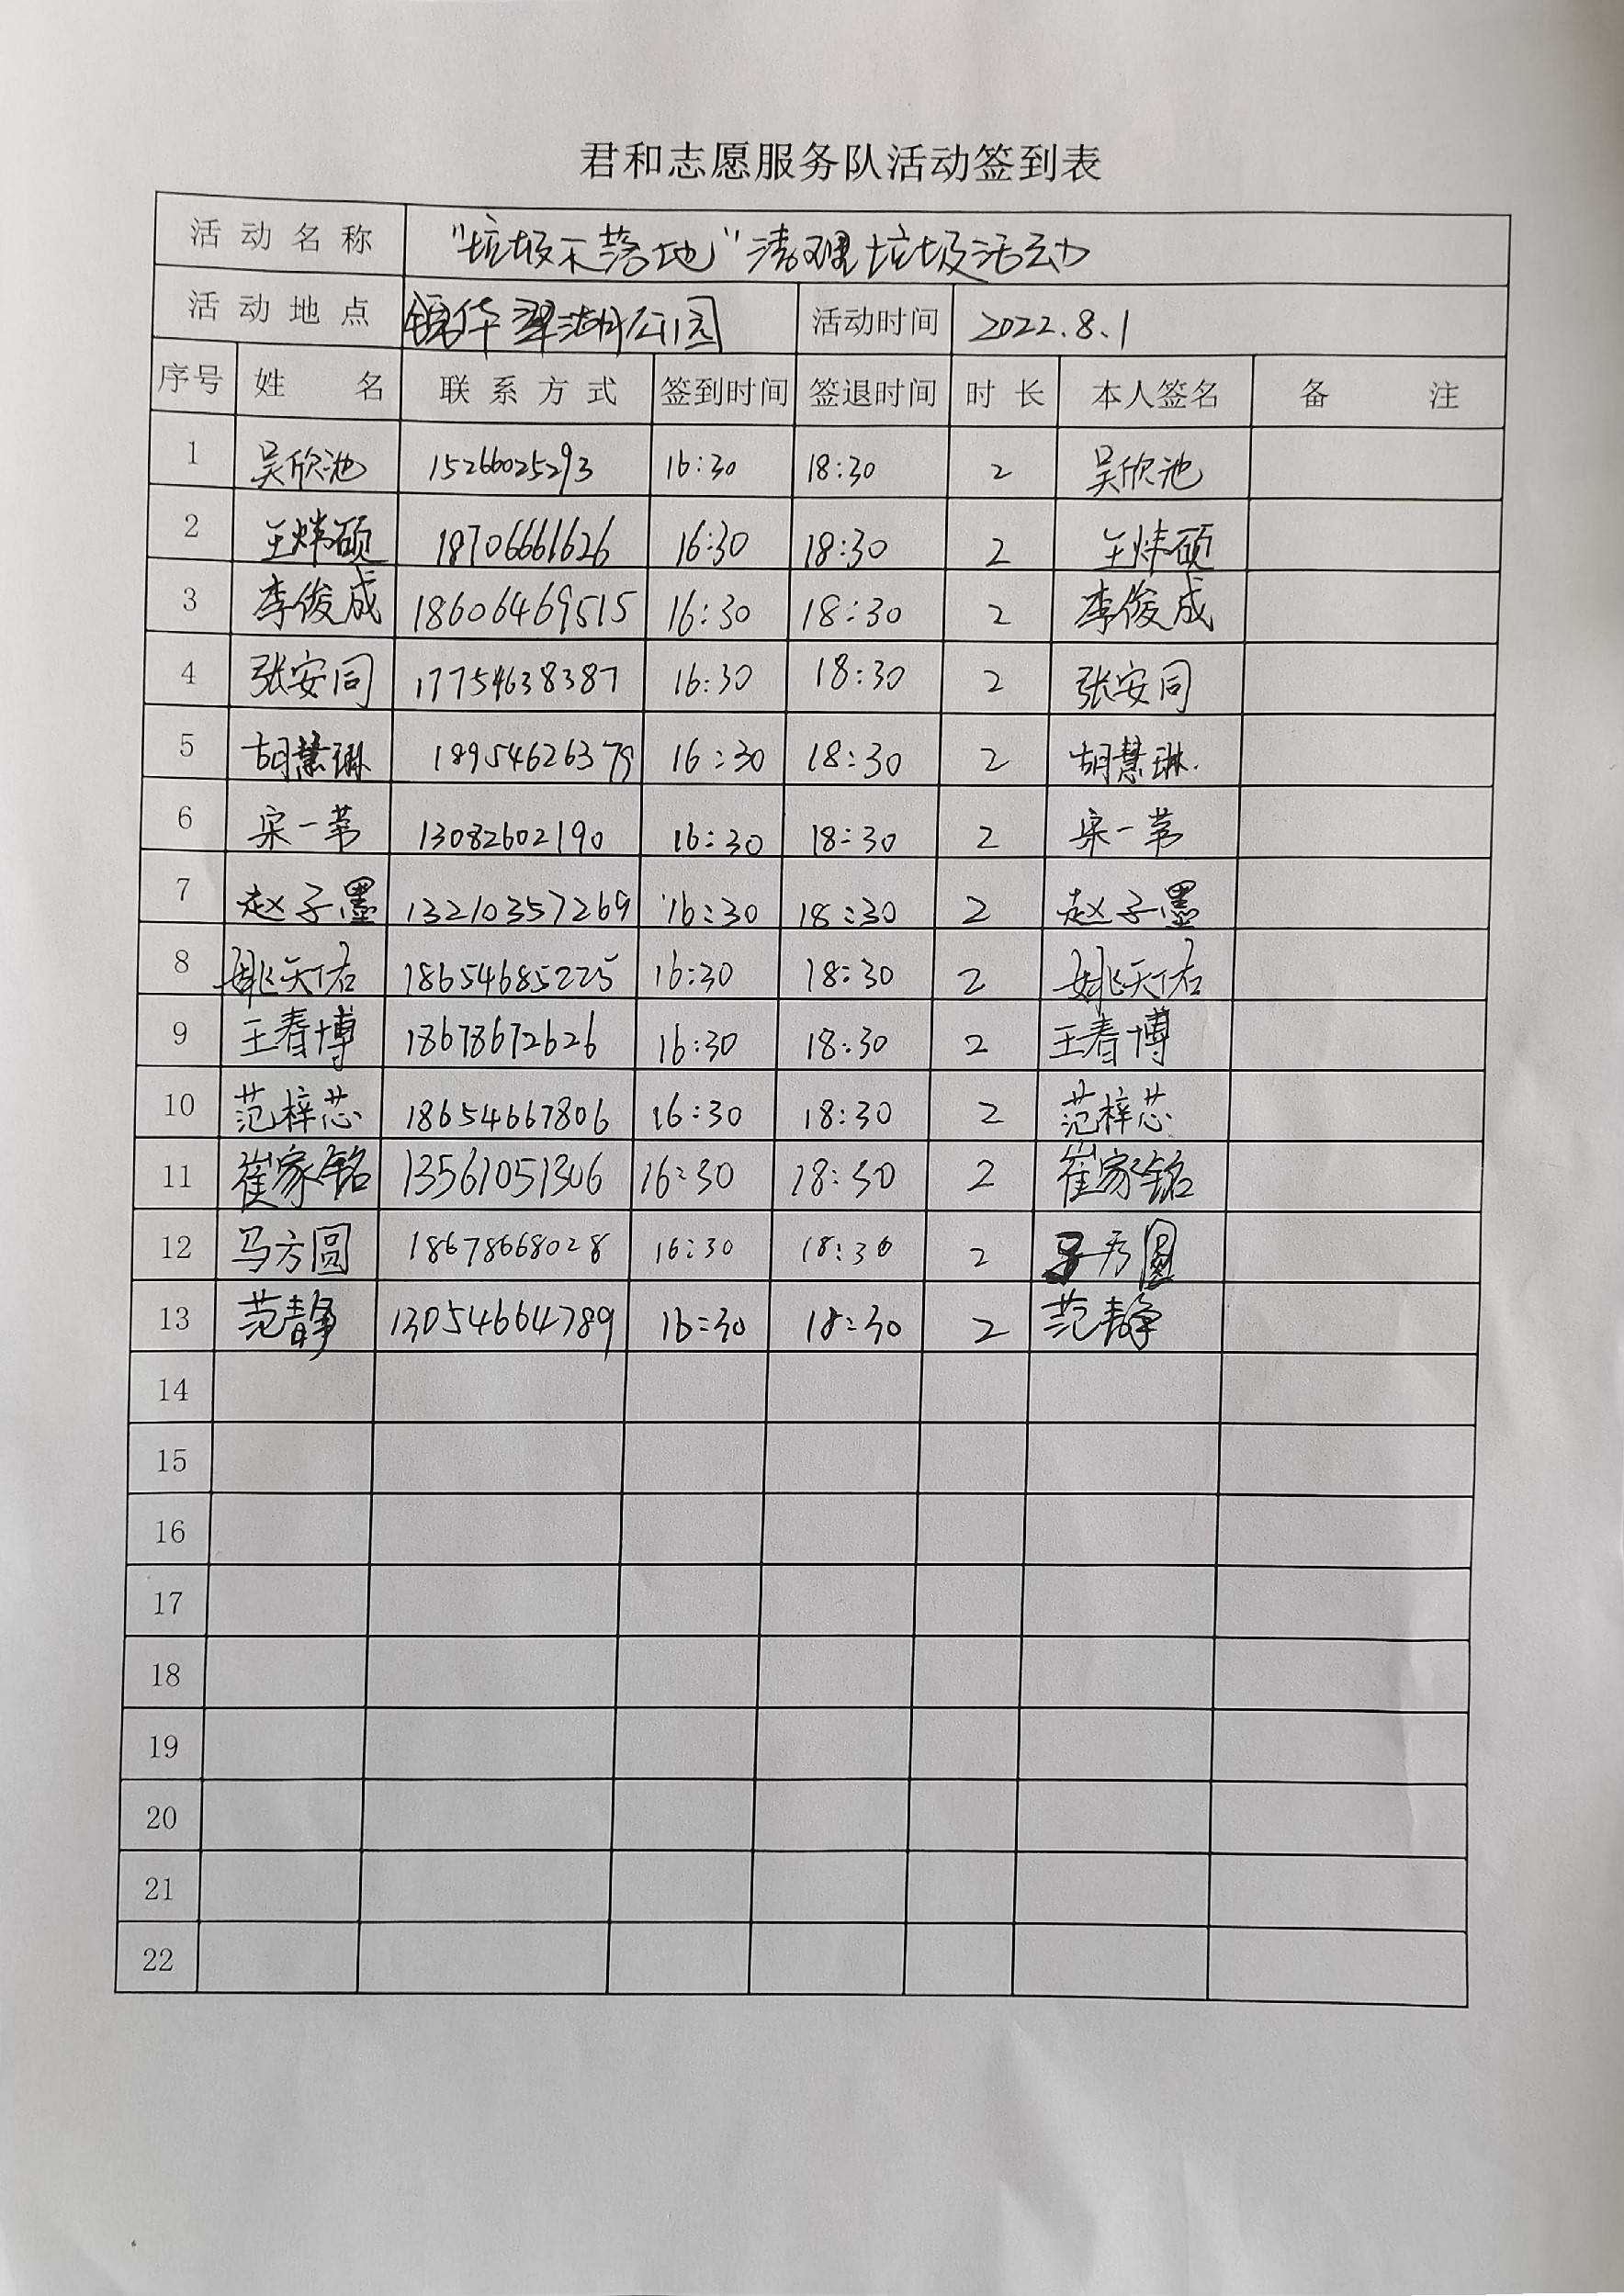 君和志愿服务队活动签到表
活动名称 "垃圾不落地"清理垃圾活动
活动地点 锦华翠湖公园 活动时间 2022.8.1
序号 姓名 联系方式 签到时间 签退时间 时长 本人签名 备注
1 吴欣池 15266025293 16:30 18:30 2 吴欣池
2 王炜硕 18706661626 16:30 18:30 2 王炜硕
3 李俊成 18606469515 16:30 18:30 2 李俊成
4 张安同 17754638387 16:30 18:30 2 张安同
5 胡慧琳 18954626379 16:30 18:30 2 胡慧琳.
6 宋一苇 13082602190 16:30 18:30 2 宋一苇
7 赵子墨 13210357269 16:30 18:30 2 赵子墨
8 姚天佑 18654685225 16:30 18:30 2 姚天佑
9 王春博 18678672626 16:30 18:30 2 王春博
10 范梓芯 18654667806 16:30 18:30 2 范梓芯
11 崔家铭 13561051306 16:30 18:30 2 崔家铭
12 马方圆 18678668028 16:30 18:30 2 马方圆
13 范静 13054664789 16:30 18:30 2 范静
14
15
16
17
18
19
20
21
22